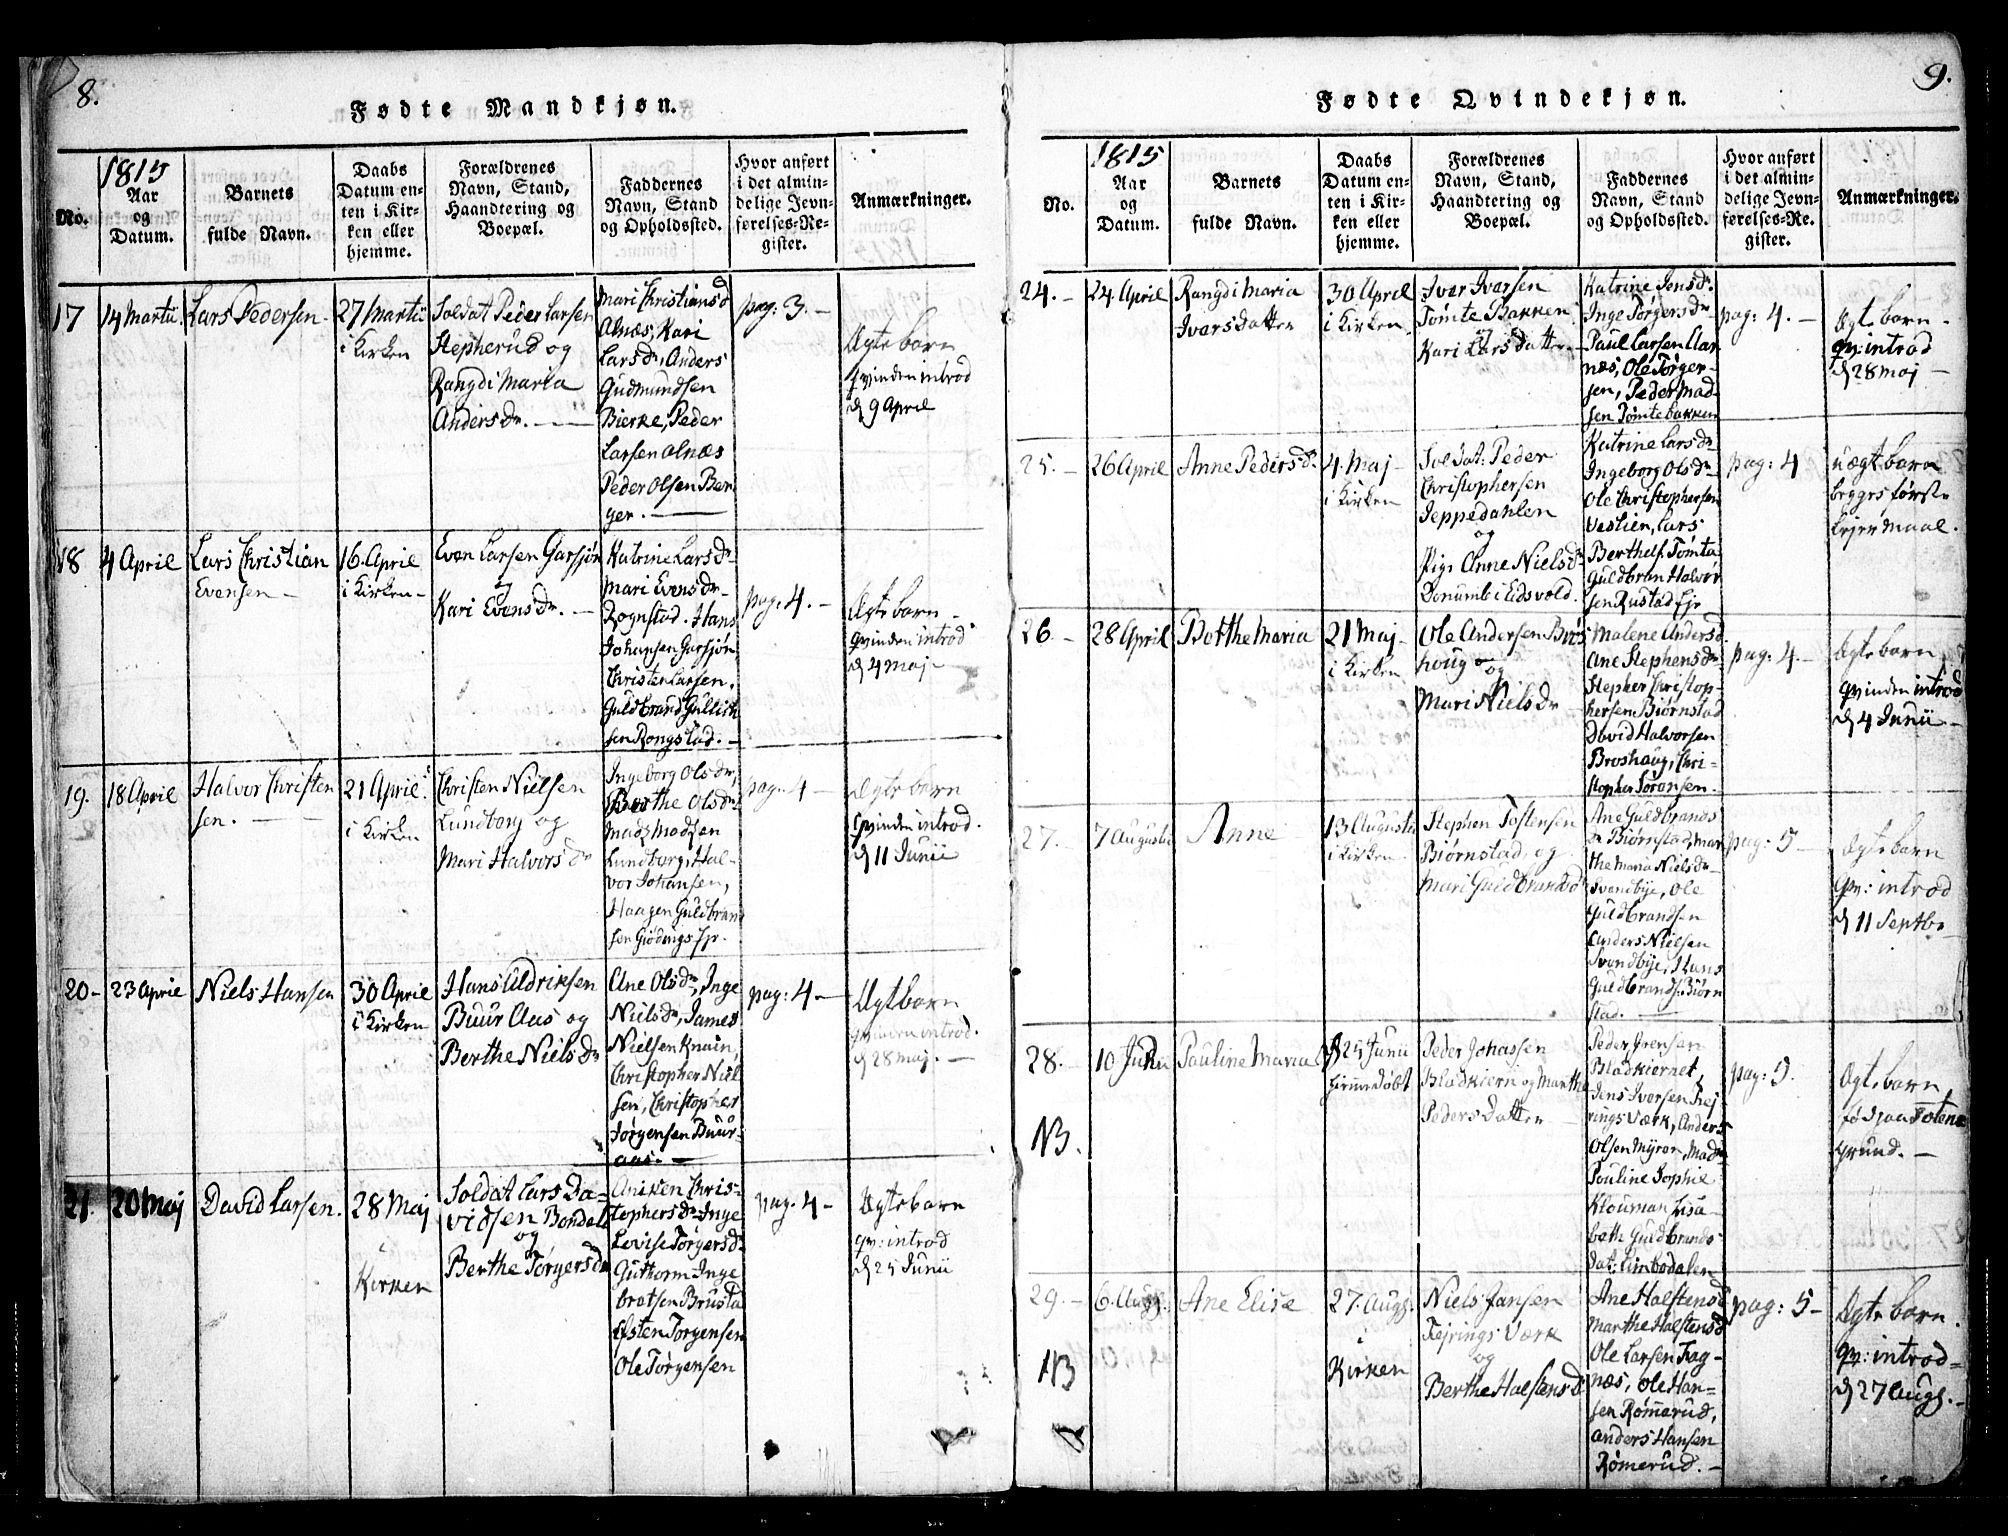 8.
Fødte Mandkjøn.
1815
No.
Aar og Datum.
Barnets fulde Navn.
Daabs Datum enten i Kirken eller hjemme.
Forældrenes Navn, Stand, Haandtering og Boepæl.
Faddernes Navn, Stand og Opholdssted.
Hvor anført i det almindelige Jevnførelses-Register.
Anmærkninger.
17
14 Martii.
Lars Pedersen.
27 Martii
i Kirken
Soldat Peder Larsen
Stepherud og
Rangdi Maria
Anders Dr.
Mari Christiansd
Alnæs, Kari
Lars dr, Anders
Gudmundsen
Bierke, Peder
Larsen Alnæs
Peder Olsen Ber
ger.
pag: 3.
Ægte barn
qvinden introd
d 9 April
18
4 April
Lars Christian
Evensen
16. April
i Kirken
Even Larsen Garsjøn
og
Kari Evens dr.
Katrine Lars dr
Mari Evens dr
Rognstad. Hans
Johansen Garsjøn,
Christen Larsen.
Guldbrand Gullich
sen Rongstad.
pag: 4.
Ægte barn
qvinden introd
d 4 maj
19.
18 April
Halvor Christen
sen.
21 April.
i Kirken
Christen Nielsen
Lundborg og
Mari Halvors dr
Ingeborg Ols dr,
Berthe Ols dr
Mads Madsen
Lundborg, Hal-
vor Johansen,
Haagen Guldbrand
sen Giødings Ejr.
pag: 4
Ægte barn
qvinden introd.
d 11 Junii
20
23 April
Niels Hansen
30 April
i Kirken
Hans Udriksen
Buur Aas og
Berthe Niels dr
Ane Ols dr, Inge
Niels dr, James
Nielsen Knain,
Christopher Niel
sen, Christopher
Jørgensen Buur-
aas.
pag: 4
Ægtbarn
qvinden introd.
d 28 maj.
21.
20 Maj
David Larsen.
28 Maj
i
Kirken
Soldat Lars Da=
vidsen Bondal
og
Berthe Tørgers dr
Aniken Chris=
tophers dr Inge
Lovise Tørgers d.
Guttorm Inge
bretsen Brusta
Østen Torgensen
Ole Tørgensen
pag. 4
Ægte barn
qv: introd
d 25 Junii
9.
Fødte Qvindekjøn.
1815
No.
Aar og Datum.
Barnets fulde Navn.
Daabs Datum enten i Kirken eller hjemme.
Forældrenes Navn, Stand, Haandtering og Boepæl.
Faddernes Navn, Stand og Opholdssted.
Hvor anført i det almindelige Jevnførelses-Register.
Anmærkninger.
24.
24. April
Rangdi Maria
Ivars Datter
30 April
i Kirken.
Ivar Ivarsen
Tømte Bakken
og
Kari Lars Datter
Katrine Jens d.
Inge Tørgers dr
Paul Larsen Aar
næs, Ole Tørger-
sen, Peder Mad
sen Tømtebakken
pag: 4.
Ægte barn
qv: introd
d 28 maj
25.
26 April
Anne Peders d.
4. Maj
i Kirken
Soldat: Peder
Christophersen
Jeppedahlen
og
Pige Anne Niels d
Donumb i Eidsvold.
Katrine Lars dr
Ingeborg Ols dr
Ole Christophersen
Vestlien, Lars
Berthels. Tømta
Guldbran Halvor
sen Rustad Ejr
pag: 4
uægt barn
begges første
Lejermaal.
26.
28 April
Berthe Maria
21 Maj
i Kirken
Ole Andersen Brøs
houg og
Mari Niels Dr
Malene Anders d.
Ane Stephens dr
Stepher Christop-
hersen Biørnstad
David Halvorsen
Broshaug, Chri-
stopher Sørensen.
pag: 4.
Ægte barn
qvinden introd
d 4 Junii
27.
7 Augusti
Anne
13 Augusti
i Kirken.
Stephen Tostensen
Biørnstad og
Mari Guldbrands d
Ane Guldbrands
dr Biørnstad, Mar
the Maria Niels dr
Svendbye, Ole
Guldbrandsen
Anders Nielsen
Svendbye, Hans
Guldbrands. Biørn
stad.
pag: 5
Ægte barn
qv: introd
d 11 Septbr
28.
NB.
10 Junii
Pauline Maria
d 25 Junii
hiemmedøbt
Peder Johassen
Bladkiern og Marthe
Peders Datter
Peder Jrensen
Bladkiernet,
Jens Ivarsen Fej
rings Værk, Anders
Olsen Myror, Madm
Pauline Sophie
Klouman Lisa-
beth Guldbrands-
dat: Limbodalen
pag: 5.
Ægte barn
fød paa Totens
grund.
29.
NB
6. Augs.
Ane Elise
27. Augs.
i
Kirken
Niels Jansen
Fejrings Værk
og
Berthe Halstens d
Ane Halstens d
Marthe Halstens d
Ole Larsen Frag-
næs, Ole Han=
sen Rømerud,
Anders Hansen
Rømerud.
pag: 5
Ægte barn.
qv: introd=
d 27 Augs.